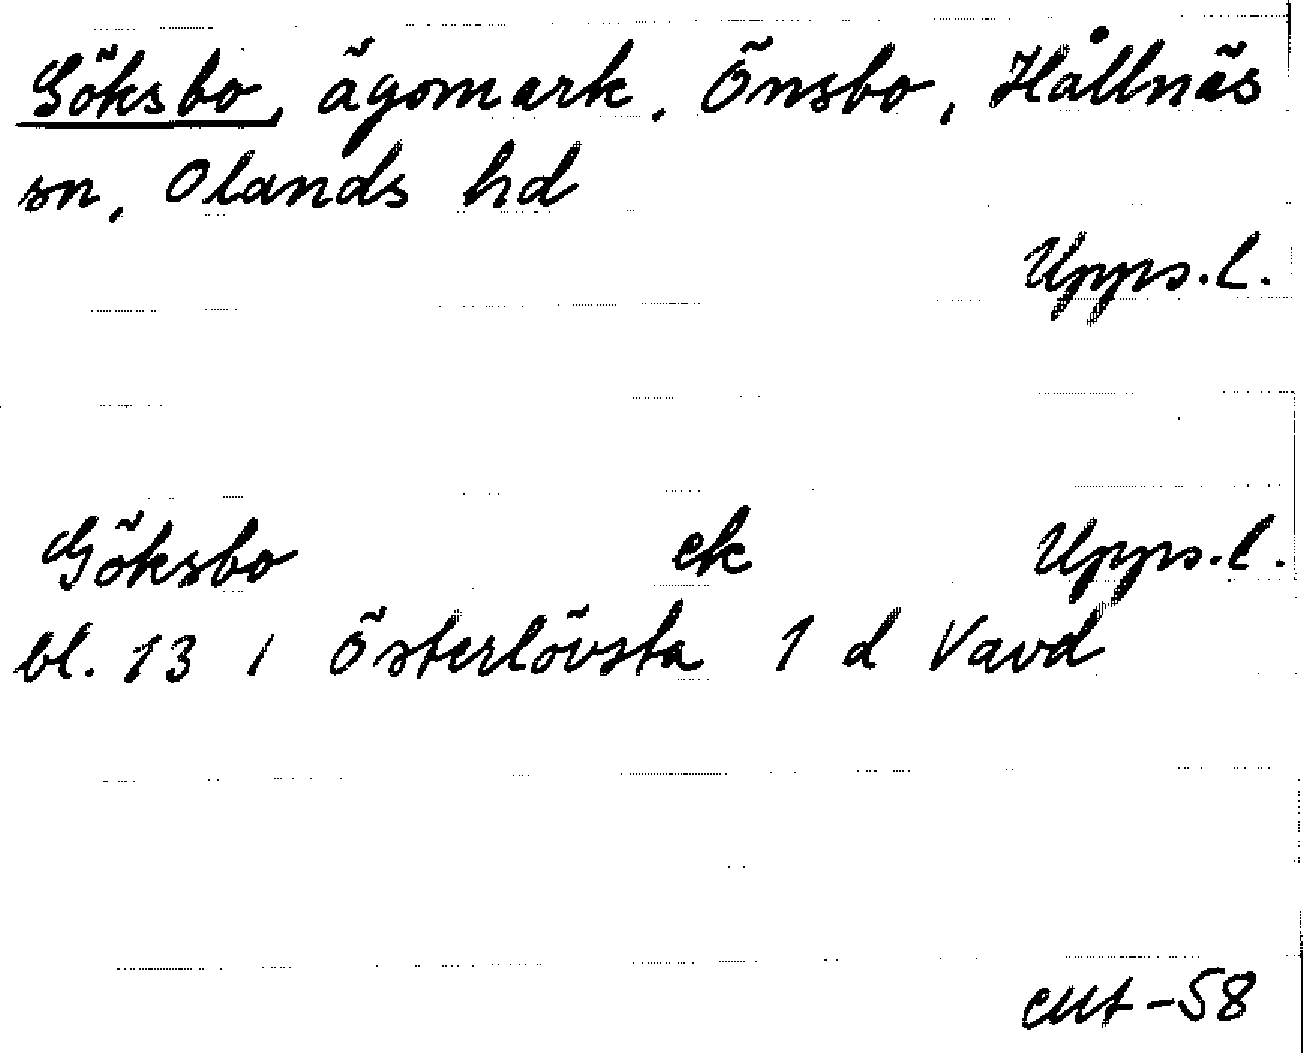 Göksbo, ägomark, Önsbo, Hållnäs
sn, Olands hd
Upps.l.
Göksbo ek Upps.l.
bl. 13 i Österlövsta 1 d Vavd
-58